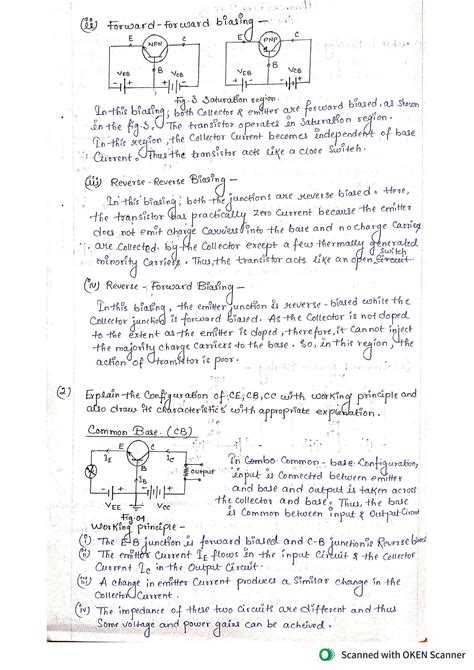 (ii) Forward-forward biasing -
E NPN C E PNP C
B B
VEB VCB VEB VCB
Fig.3 Saturation region.
In this biasing, both Collector & emitter are forward biased, as shown
in the fig.3. The transistor operates in Saturation region.
In this region, the Collector Current becomes independent of base
Current. Thus the transistor acts like a close Switch.
(iii) Reverse-Reverse Biasing -
In this biasing, both the junctions are reverse biased. Here,
the transistor has practically zero Current because the emitter
does not emit charge Carriers into the base and no charge Carriers
are Collected by the Collector except a few thermally generated
minority Carriers. Thus, the transistor acts like an open Switch
(iv) Reverse - Forward Biasing -
In this biasing, the emitter junction is reverse-biased while the
Collector junction is forward biased. As the Collector is not doped
to the extent as the emitter is doped, therefore, it cannot inject
the majority charge carriers to the base. So, in this region, the
action of transistor is poor.
(2) Explain the Configuration of CE, CB, CC with working principle and
also draw its characteristics with appropriate explanation.
Common Base (CB)
E C
IE IC
B
IB
output
VEE VCC
Fig.01
In Common-base Configuration,
input is Connected between emitter
and base and output is taken across
the Collector and base. Thus, the base
is Common between input & Output Circuit
Working principle -
(i) The E-B junction is forward biased and C-B junction is Reverse biased
(ii) The emitter Current IE flows in the input Circuit & the Collector
Current IC in the Output Circuit.
(iii) A change in emitter Current produces a Similar change in the
Collector Current.
(iv) The impedance of these two Circuits are different and thus
Some voltage and power gains can be acheived.
Scanned with OKEN Scanner